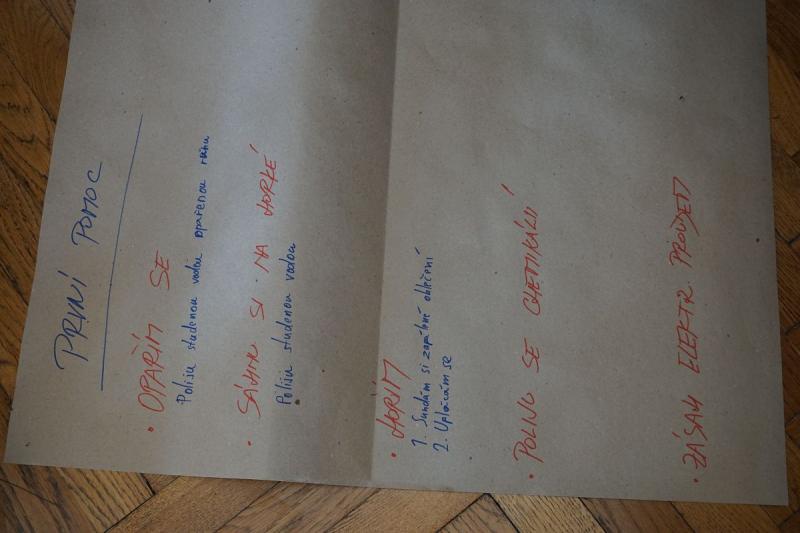 PRVNÍ POMOC
• OPAŘÍM SE
Poliju studenou vodou opařenou ránu
• SÁHNU SI NA HORKÉ
Poliju studenou vodou
• HOŘÍM
1. Sundám si zapálené oblečení
2. Uplácám se
• POLINU SE CHEMIKÁLIÍ
• ZÁSAH ELEKTR. PROUDEM